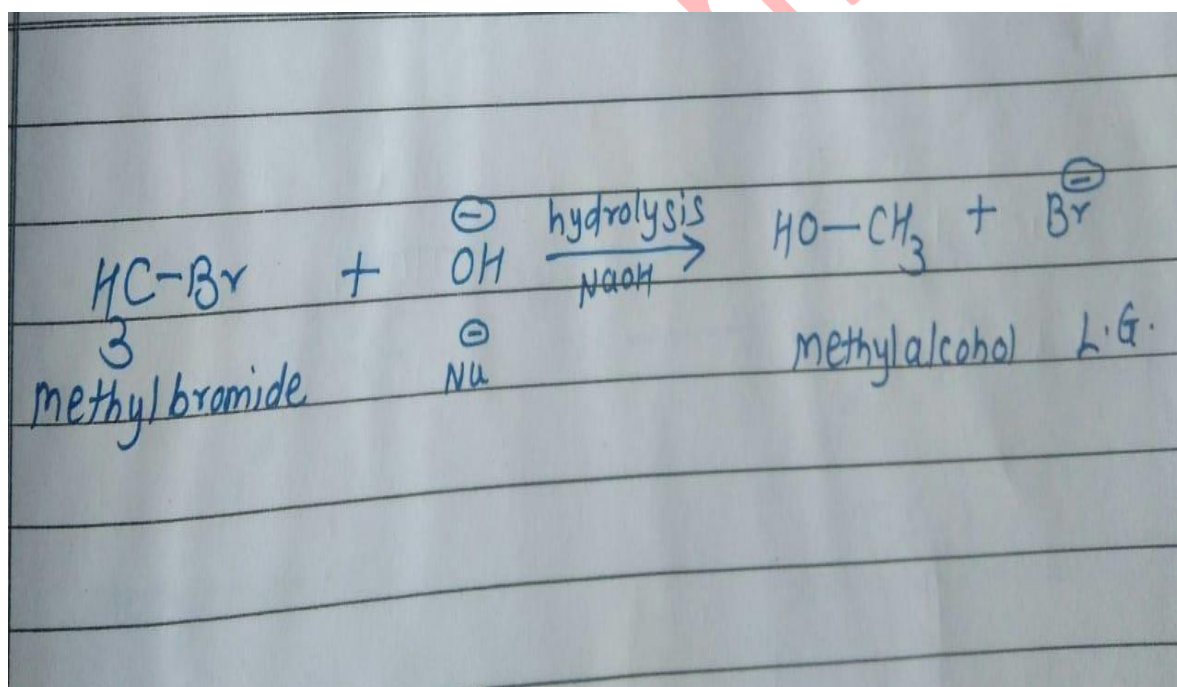 H₃C-Br + OH⊖ hydrolysis NaOH → HO-CH₃ + Br⊖
methylbromide Nu⊖ methylalcohol L.G.